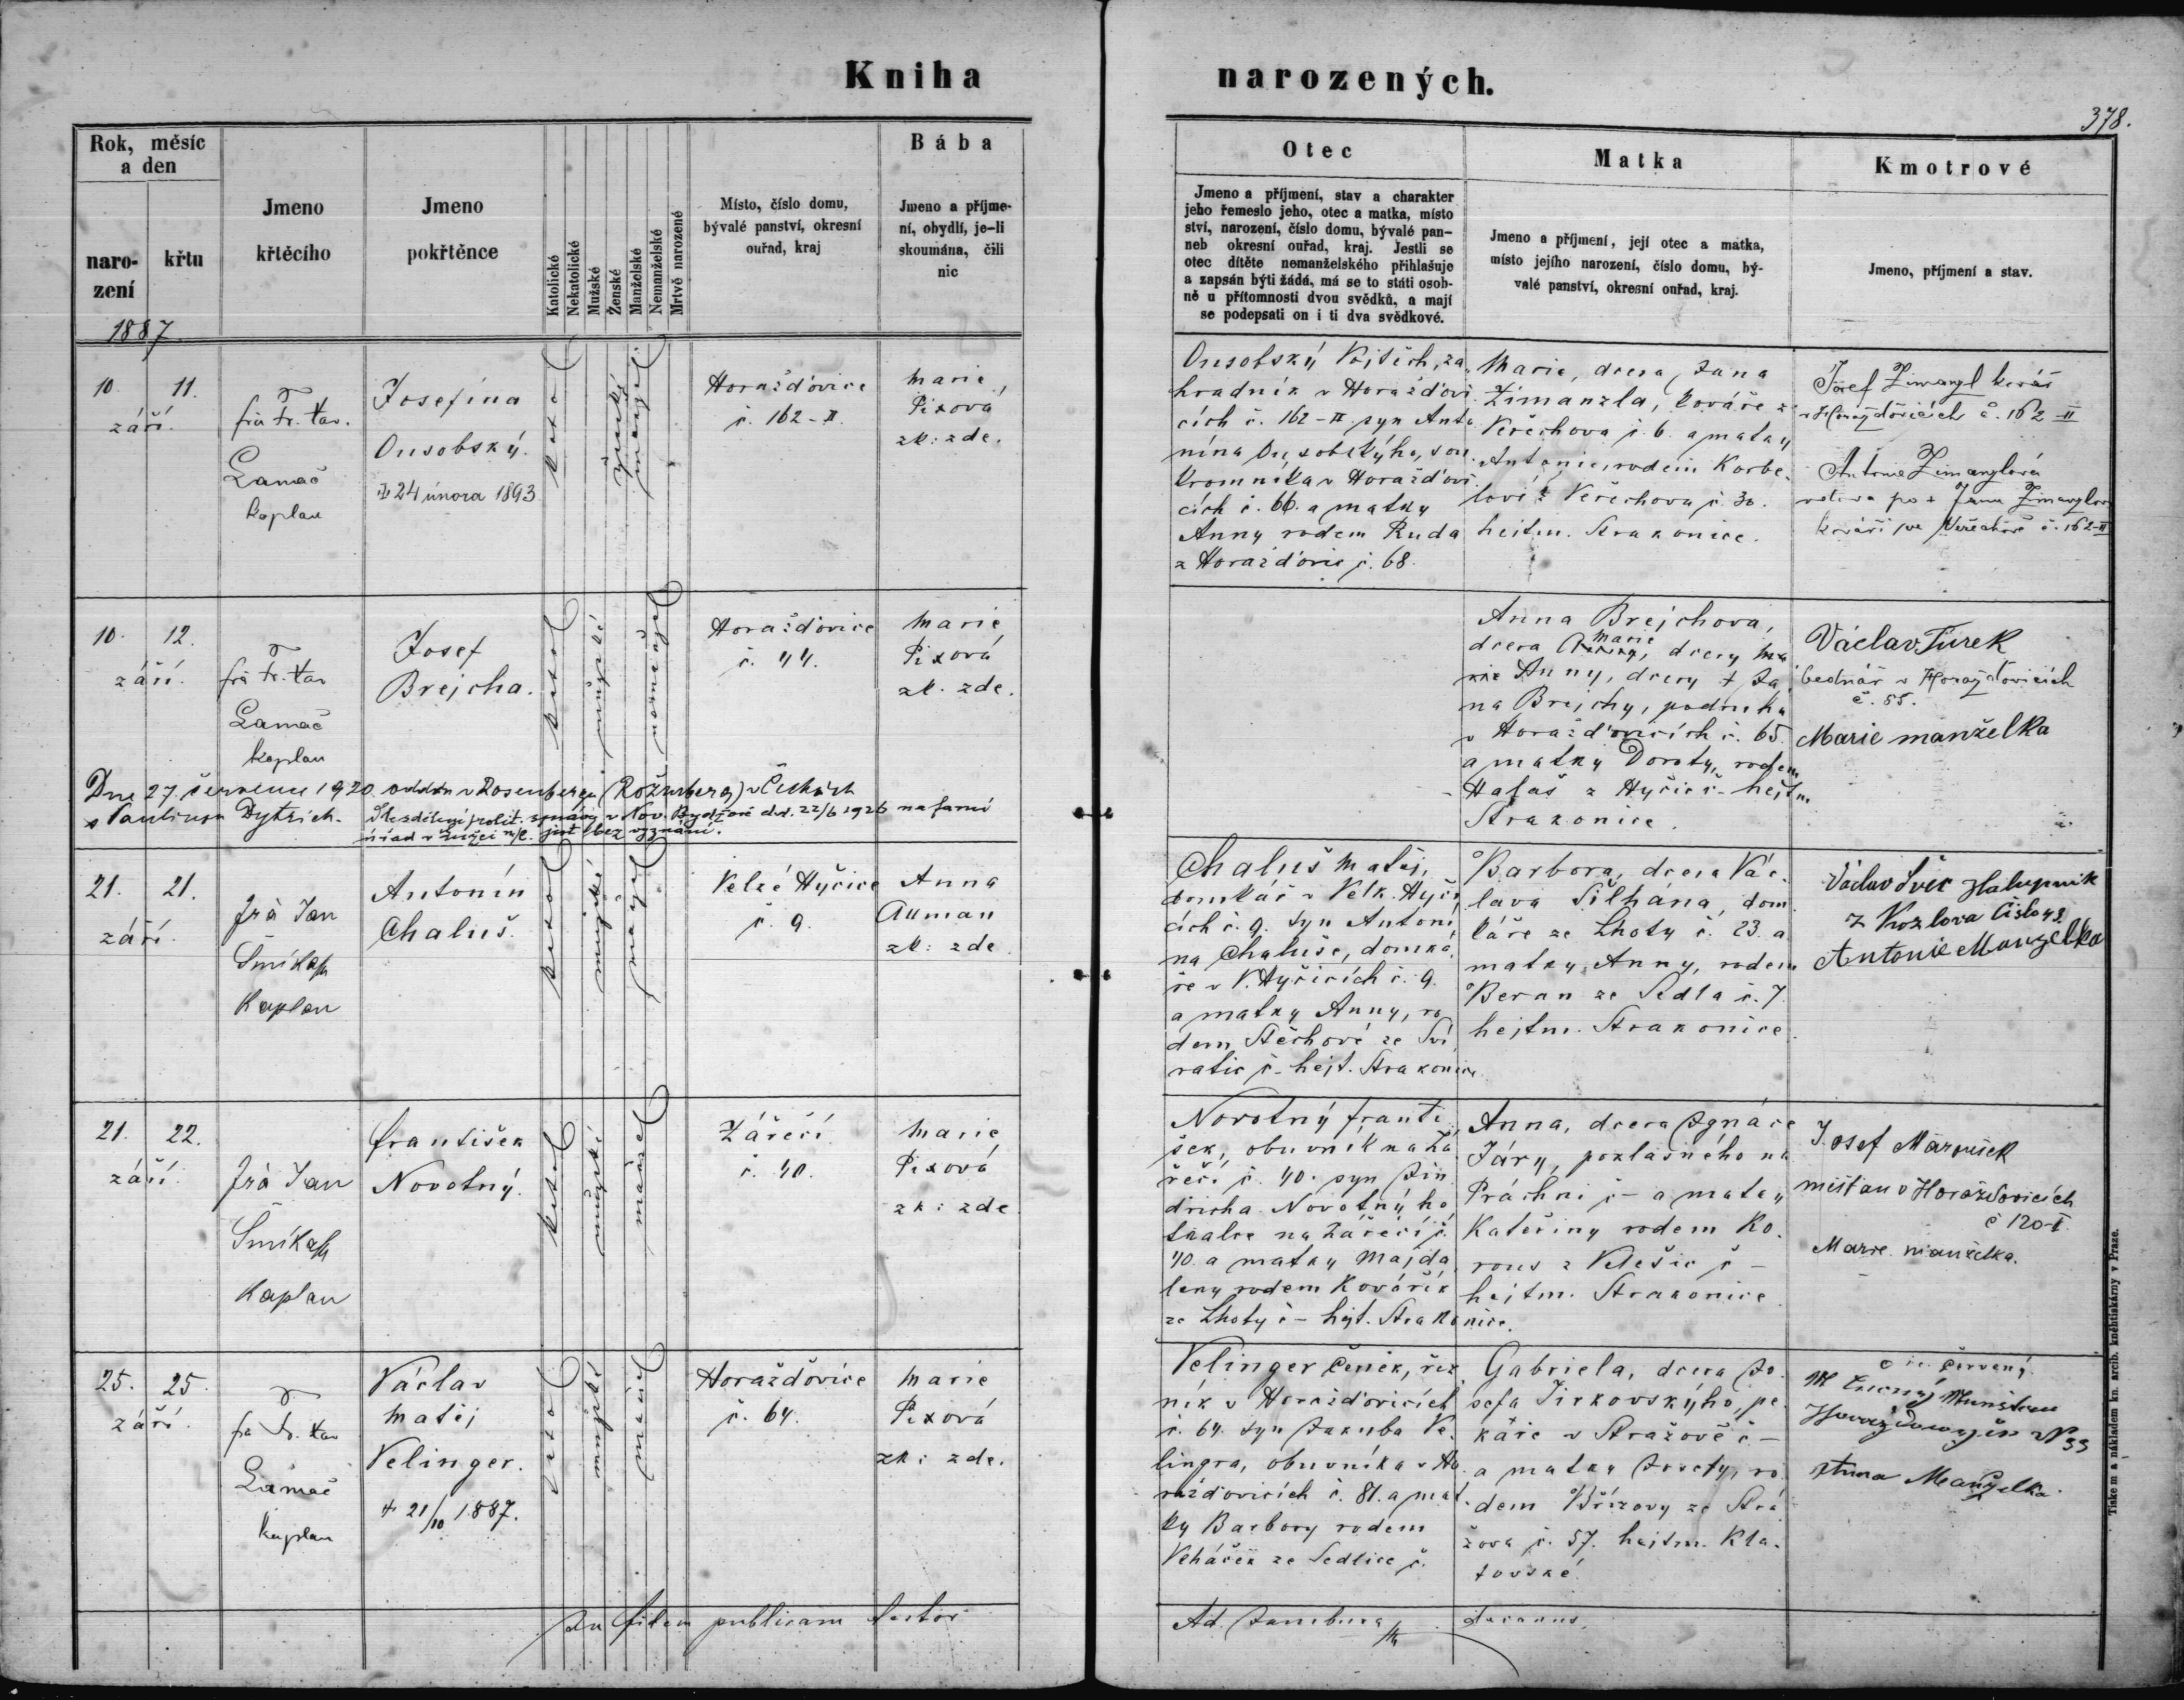 Kniha narozených.
378.
Rok, měsíc
a den
naro-
zení
křtu
1887
Jmeno
křtěcího
Jmeno
pokřtěnce
Katolické
Nekatolické
Mužské
Ženské
Manželské
Nemanželské
Mrtvě narozené
Místo, číslo domu,
bývalé panství, okresní
ouřad, kraj
Bába
Jmeno a příjme-
ní, obydlí, je-li
skoumána, čili
nic
Otec
Jmeno a příjmení, stav a charakter
jeho řemeslo jeho, otec a matka, místo
ství, narození, číslo domu, bývalé pan-
neb okresní ouřad, kraj. Jestli se
otec dítěte nemanželského přihlašuje
a zapsán býti žádá, má se to státi osob-
ně u přítomnosti dvou svědků, a mají
se podepsati on i ti dva svědkové.
Matka
Jmeno a příjmení, její otec a matka,
místo jejího narození, číslo domu, bý-
valé panství, okresní ouřad, kraj.
Kmotrové
Jmeno, příjmení a stav.
10. 11.
září.
Lamač
kaplan
Josefina
Ousobský.
24 února 1893
katol
ženské
manžel
Horažďovice
č. 162-II.
Marie
Pixová
zk: zde.
Ousobský Vojtěch, za
hradník v Horažďovi
cích č. 162-II. syn Anto
nína Ousobskýho, sou
kromníka v Horažďovi
cích č. 66. a matky
Anny rodem Ruda
z Horažďovic č. 68.
Marie, dcera Jana
Zimanzla, kováře z
Veřechova č. 6. a matky
Antonie, rodem Korbe
lové z Veřechova č. 30.
hejtm. Strakonice.
Josef Zimanzl kovář
v Horažďovicích č. 162 II
Antonie Zimanzlová
vdova po + Janu Zimanzlovi
kováři ve Veřechově č. 162-II
10. 12.
září.
Lamač
kaplan
Josef
Brejcha.
katol
mužské
nemanžel
Horažďovice
č. 44.
Marie
Pixová
zk. zde.
Anna Brejchova,
dcera Marie, dcery Ma
rie Anny, dcery + Ja
na Brejchy, podruha
v Horažďovicích č. 65.
a matky Doroty, rodem
Halaš z Hyčic č- hejtm.
Strakonice.
Václav Tůrek
bednář v Horažďovicích
č. 55.
Marie manželka
Dne 27. července 1920 oddán v Rosenbergu (Rožmberg) v Čechách
s Paulinou Dytrich. Dle sdělení polit. správy v Nov. Bydžově dd. 22/6 1926 na farní
úřad jest bez vyznání.
21. 21.
září.
Frà Jan
Šmíkal
kaplan
Antonín
Chaluš.
katol
mužské
manžel
Velké Hyčice
č. 9.
Anna
Auman
zk: zde
Chaluš Matěj,
domkář v Velk. Hyči
cích č. 9. syn Antoní
na Chaluše, domká
ře v V. Hyčicích č. 9.
a matky Anny, ro
dem Stěchové ze Svi
ratic č- hejt. Strakonice
Barbora, dcera Vác
lava Šilhána, dom
káře ze Lhoty č. 23. a
matky Anny, rodem
Beran ze Sedla č. 7.
hejtm. Strakonice
Václav Švec Halupnik
z Kozlova Čislo 42
Antonie Manzelka
21. 22.
září.
Frà Jan
Šmíkal
kaplan
František
Novotný.
katol
mužské
manžel
Zářečí
č. 40.
Marie
Pixová
zk: zde
Novotný Franti
šek, obuvník na Zá
řečí č. 40. syn Jin
dricha Novotnýho
tkalce na Zářečí č.
40. a matky Majda
leny rodem Kovářík
ze Lhoty č - hejt. Strakonice.
Anna, dcera Ignáce
Járy, poklasného na
Práchni č- a matky
Kateřiny rodem Ko
rous z Velešic č -
hejtm. Strakonice
Josef Maroušek
mištan v Horažďovicích
č 120-I.
Marie manželka.
25. 25.
září.
Lamač
kaplan
Václav
Matěj
Velinger.
+ 21/10 1887.
katol
mužské
manžel
Horažďovice
č. 64.
Marie
Pixová
zk: zde.
Velinger Čeněk, řez
ník v Horažďovicích
č. 64. syn Jakuba Ve
lingra, obuvníka v Ho
ražďovicích č. 81. a mat
ky Barbory rodem
Veháček ze Sedlice č.
Gabriela, dcera Jo
sefa Jirkovskýho, pe
káře v Strážově č -
a matky Josefy, ro
dem Břízovy ze Strá
žova č. 57. hejtm. Kla
tovské.
Anna Manželka
In fidem publicam testor
Ad. Jambura
decanus.
Tiskem a nákladem kn. arcib. kněhtiskárny v Praze.